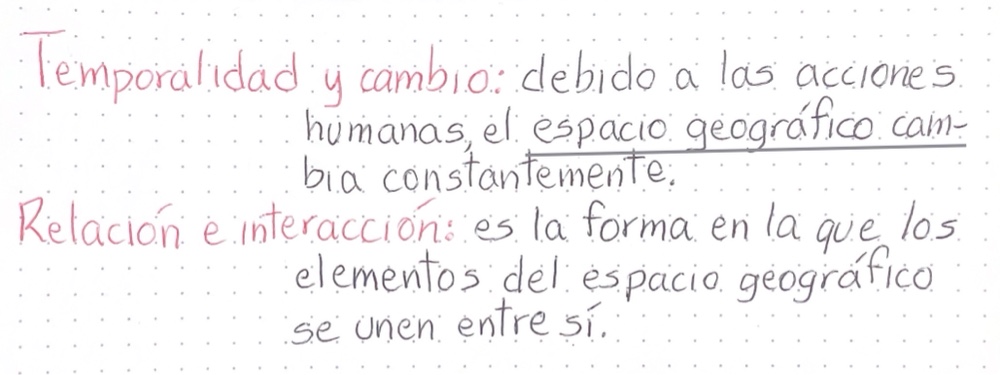 Temporalidad y cambio: debido a las acciones
humanas, el espacio geográfico cam-
bia constantemente.
Relación e interacción: es la forma en la que los
elementos del espacio geográfico
se unen entre sí.